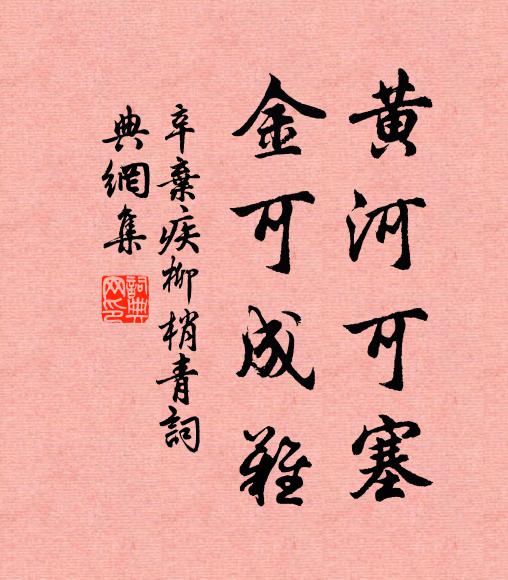 黄河可塞
金可成難
辛棄疾柳梢青詞
典網集
詞典網印